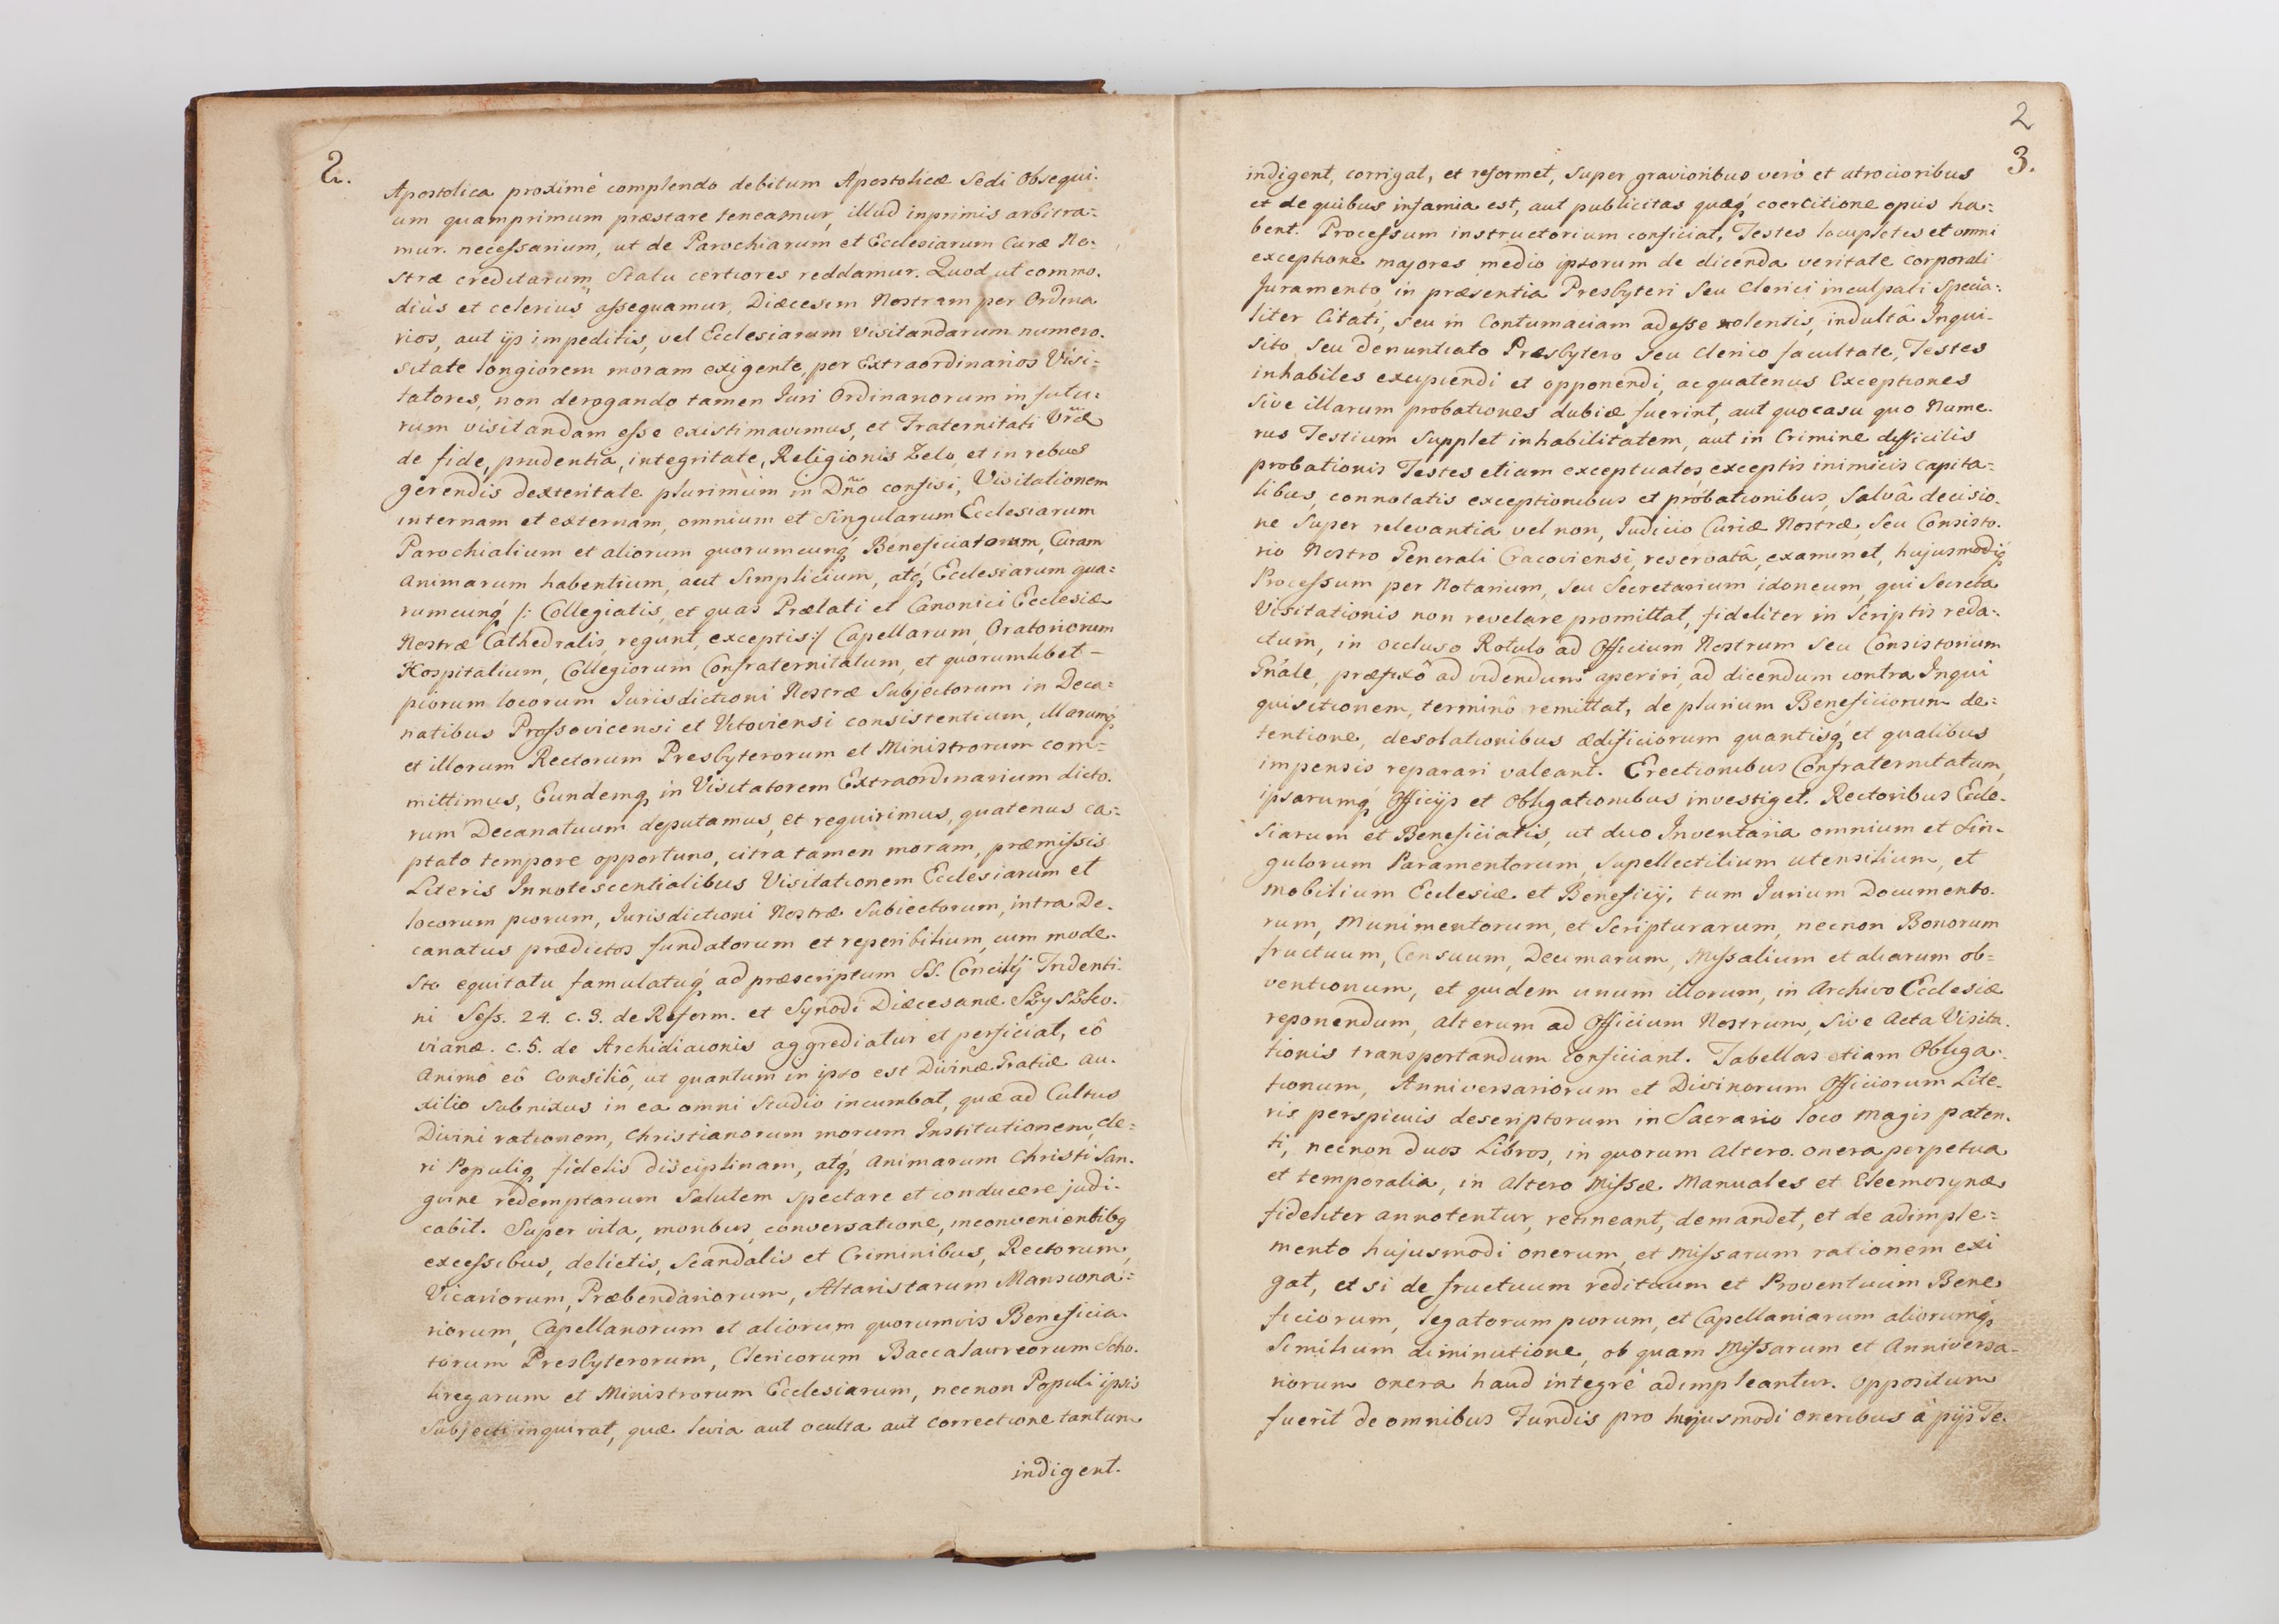 2.
Apostolica proximè complendo debitum Apostolicæ Sedi Obsequi-
um quamprimum præstare teneamur, illud inprimis arbitra=
mur necessarium, ut de Parochiarum et Ecclesiarum Curæ No-
stræ creditarum Statu certiores reddamur. Quod ut commo-
diùs et celeriùs assequamur, Diæcesim Nostram per Ordina
rios, aut ijs impeditis, vel Ecclesiarum visitandarum numero-
sitate longiorem moram exigente, per Extraordinarios Visi=
tatores, non derogando tamen Juri Ordinariorum in futu=
rum visitandam esse existimavimus, et Fraternitati Vræ
de fide, prudentia, integritate, Religionis Zelo, et in rebus
gerendis dexteritate plurimùm in Dño confisi, Visitationem
internam et externam, omnium et Singularum Ecclesiarum
Parochialium et aliorum quorumcunq́ Beneficiatorum, Curam
animarum habentium, aut Simplicium, atq́ Ecclesiarum qua=
rumcunq́ /: Collegiatis, et quas Prælati et Canonici Ecclesiæ
Nostræ Cathedralis, regunt, exceptis :/ Capellarum, Oratoriorum
Hospitalium, Collegiorum Confraternitatum, et quorumlibet-
piorum locorum Jurisdictioni Nostræ Subjectorum in Deca=
natibus Prossovicensi et Vitoviensi consistentium, illarumq́
et illorum Rectorum Presbyterorum et Ministrorum com=
mittimus, Eundemq́ in Visitatorem Extraordinarium dicto-
rum Decanatuum deputamus, et requirimus, quatenus ca=
ptato tempore opportuno, citra tamen moram, præmissis
Literis Innotescentialibus Visitationem Ecclesiarum et
locorum piorum, Jurisdictioni Nostræ Subiectorum, intra De-
canatus prædictos fundatorum et reperibilium, cum mode-
sto equitatu famulatuq́ ad præscriptum SS. Concilij Tridenti-
ni Sess. 24. c. 3. de Reform. et Synodi Diæcesanæ Szyszko-
vianæ. c. 5. de Archidiaconis aggrediatur et perficiat, eô
Animô eô Consiliô, ut quantum in ipso est Divinæ Gratiæ au-
xilio subnixus in ea omni Studio incumbat, quæ ad Cultus
Divini rationem, Christianorum morum Institutionem, Cle=
ri Populiq́ fidelis disciplinam, atq́ animarum Christi San-
guine redemptarum Salutem spectare et conducere judi-
cabit. Super vita, moribus, conversatione, inconvenientibq
excessibus, delictis, Scandalis et Criminibus, Rectorum,
Vicariorum, Præbendariorum, Altaristarum Mansiona=
riorum, Capellanorum et aliorum quorumvis Beneficia-
torum Presbyterorum, Clericorum Baccalaureorum Scho-
liregarum et Ministrorum Ecclesiarum, necnon Populi ipsis
Subjecti inquirat, quæ levia aut oculta aut correctione tantum
indigent.
2
3.
indigent, corrigat, et reformet, Super gravioribus verò et atrocioribus
et de quibus infamia est, aut publicitas quæq́ coercitione opus ha=
bent. Processum instructorium conficiat, Testes locupletes et omni
exceptione majores medio ipsorum de dicenda veritate corporali
Juramento, in præsentia Presbyteri Seu Clerici inculpati Specia=
liter Citati, seu in Contumaciam adesse nolentis, indultâ Inqui-
sito, Seu denuntiato Presbytero Seu Clerico facultate, Testes
inhabiles excipiendi et opponendi, ac quatenus Exceptiones
Sive illarum probationes dubiæ fuerint, aut quocasu quo Nume-
rus Testium Supplet inhabilitatem, aut in Crimine difficilis
probationis Testes etiam exceptuatos exceptis inimicis Capita=
libus, connotatis exceptionibus et probationibus, Salvâ decisio-
ne Super relevantia vel non, Judicio Curiæ Nostræ, Seu Consisto-
rio Nostro Generali Cracoviensi, reservatâ, examinet, hujusmodiq́
Processum per Notarium, Seu Secretarium idoneum, qui Secreta
Visitationis non revelare promittat, fideliter in Scriptis reda=
ctum, in occluso Rotulo ad Officium Nostrum Seu Consistorium
Gnále, præfixô ad videndum aperiri, ad dicendum contra Inqui
quisitionem, terminô remittat, de plurium Beneficiorum de=
tentione, desolationibus ædificiorum quantisq́ et qualibus
impensis reparari valeant. Erectionibus Confraternitatum,
ipsarumq́ Officijs et Obligationibus investiget. Rectoribus Eccle-
siarum et Beneficiatis, ut duo Inventaria omnium et Sin-
gulorum Paramentorum, Supellectilium utensilium, et
mobilium Ecclesiæ et Beneficij, tum Jurium Documento-
rum, Munimentorum, et Scripturarum, necnon Bonorum
fructuum, Censuum, Decimarum, Missalium et aliarum ob=
ventionum, et quidem unum illorum, in Archivo Ecclesiæ
reponendum, alterum ad Officium Nostrum, Sive Acta Visita-
tionis transportandum conficiant. Tabellas etiam Obliga-
tionum, Anniversariorum et Divinorum Officiorum Lite-
ris perspicuis descriptorum in Sacrario loco magis paten-
ti, necnon duos Libros, in quorum altero onera perpetua
et temporalia, in altero Missæ Manuales et Eleemosynæ
fideliter annotentur, retineant, demandet, et de adimple=
mento hujusmodi onerum, et Missarum rationem exi
gat, et si de fructuum redituum et Proventuum Bene
ficiorum, legatorum piorum, et Capellaniarum aliorumq́
Similium diminutione, ob quam Missarum et Anniversa-
riorum onera haud integrè adimpleantur. oppositum
fuerit de omnibus Fundis pro hujusmodi oneribus à pijs Te-